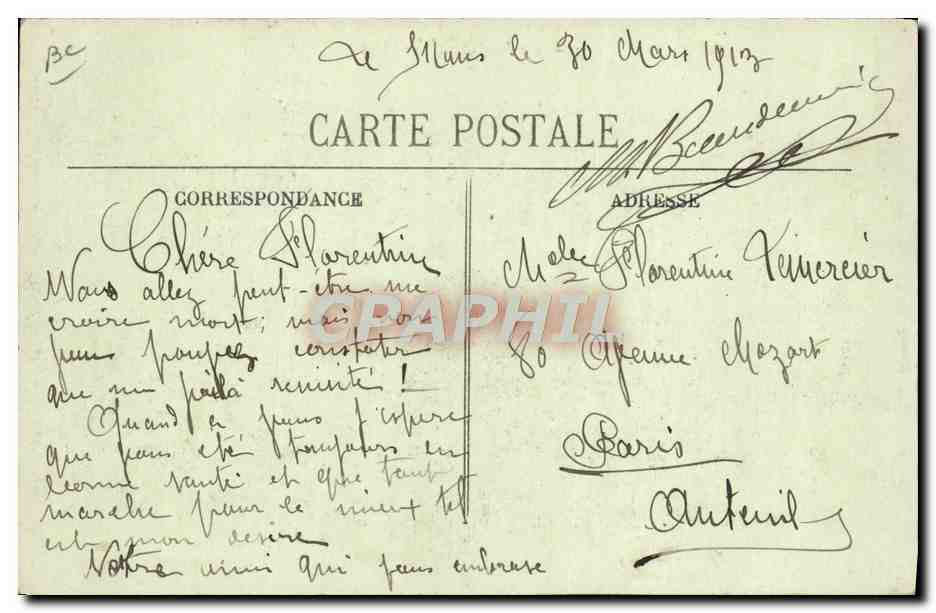 Bc
Le Mans le 30 Mars 1913
CARTE POSTALE
CORRESPONDANCE
ADRESSE
Chère Florentine
Vous allez peut-être me
croire mort; mais
vous pouvez constater
que me voilà !
Quand à vous j'espère
que vous été toujours en
bonne santé et que tout
marche pour le mieux tel
est mon désire
Votre ami qui vous embrasse
Melle Florentine Lemercier
80 Avenue Mozart
Paris
Auteuil
CPAPHIL